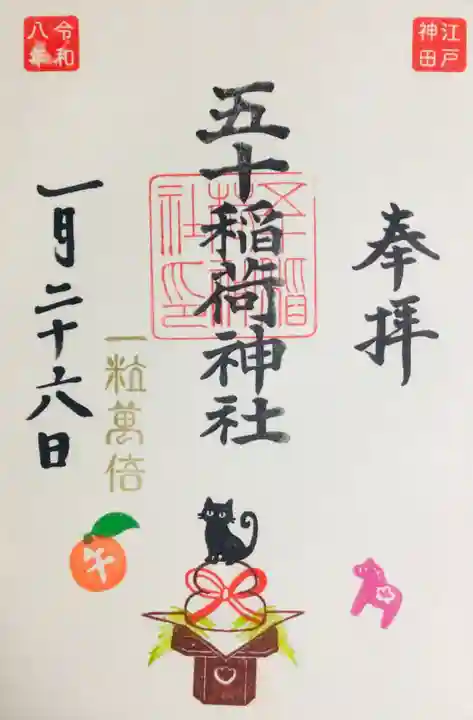 江戸
神田
奉拝
五十稲荷神社
一粒萬倍
一月二十六日
令和
八年
午